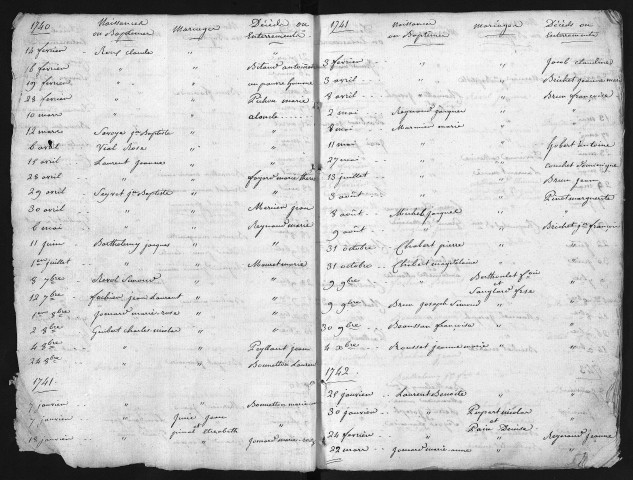 1740 Naissances ou Baptêmes Mariages Décès ou Enterrements
14 février .. Roux claude " "
16 février " " Bitaud antoine
19 février .. " " un pauvre homme
28 février " " Pichon marie
10 mars .. " "
12 mars .. Savoye jn Baptiste " "
6 avril .. Vial Rose " "
15 avril .. Laurent jeanne " "
28 avril .. " " marie
29 avril .. Seyvet jn Baptiste " "
30 avril .. " " Mercier jean
6 mai .. " " Reynaud marie
11 juin .. Barthelemy jacques " "
1er juillet .. " " Monet marie
8 7bre .. Revol Simond "
12 7bre .. jean Laurent "
1er 8bre .. Jomard marie-rose "
2 8bre .. Guibert charles nicolas "
4 8bre Peyssaut jean
24 8bre Bonneton Laurent
1741.
7 janvier .. " " Bonneton marie
7 janvier .. " Juvin jean
et
pinet elizabeth
18 janvier .. " " Jomard marie-rose
1741 Naissances ou Baptêmes Mariages Décès ou Enterrements
3 février .. " " Jomb claudine
3 avril .. " " Brichet jeanne marie
8 avril .. " " Brun françoise
2 mai .. Reynaud jacques " "
8 mai .. Marmier marie " "
11 mai .. " " Gobert antoine
27 mai .. " " couchet dominique
13 juillet .. " " Brun jean
3 août .. " " Pinet marguerite
8 août .. Michel jacques " "
9 août .. " " Brichet jn françois
31 octobre .. Chabert pierre " "
31 octobre .. Chabert magdelaine " "
9 9bre .. " Berthoulet
et
9 9bre .. Brun joseph Simond " "
30 9bre .. Boussan françoise " "
4 xbre .. Rousset jeanne marie " "
1742
28 janvier .. Laurent Benoite " "
30 janvier .. " Pupat nicolas
et
Pain Denise "
24 février .. " " Reynaud jeanne
22 mars .. Jomard marie-anne " "